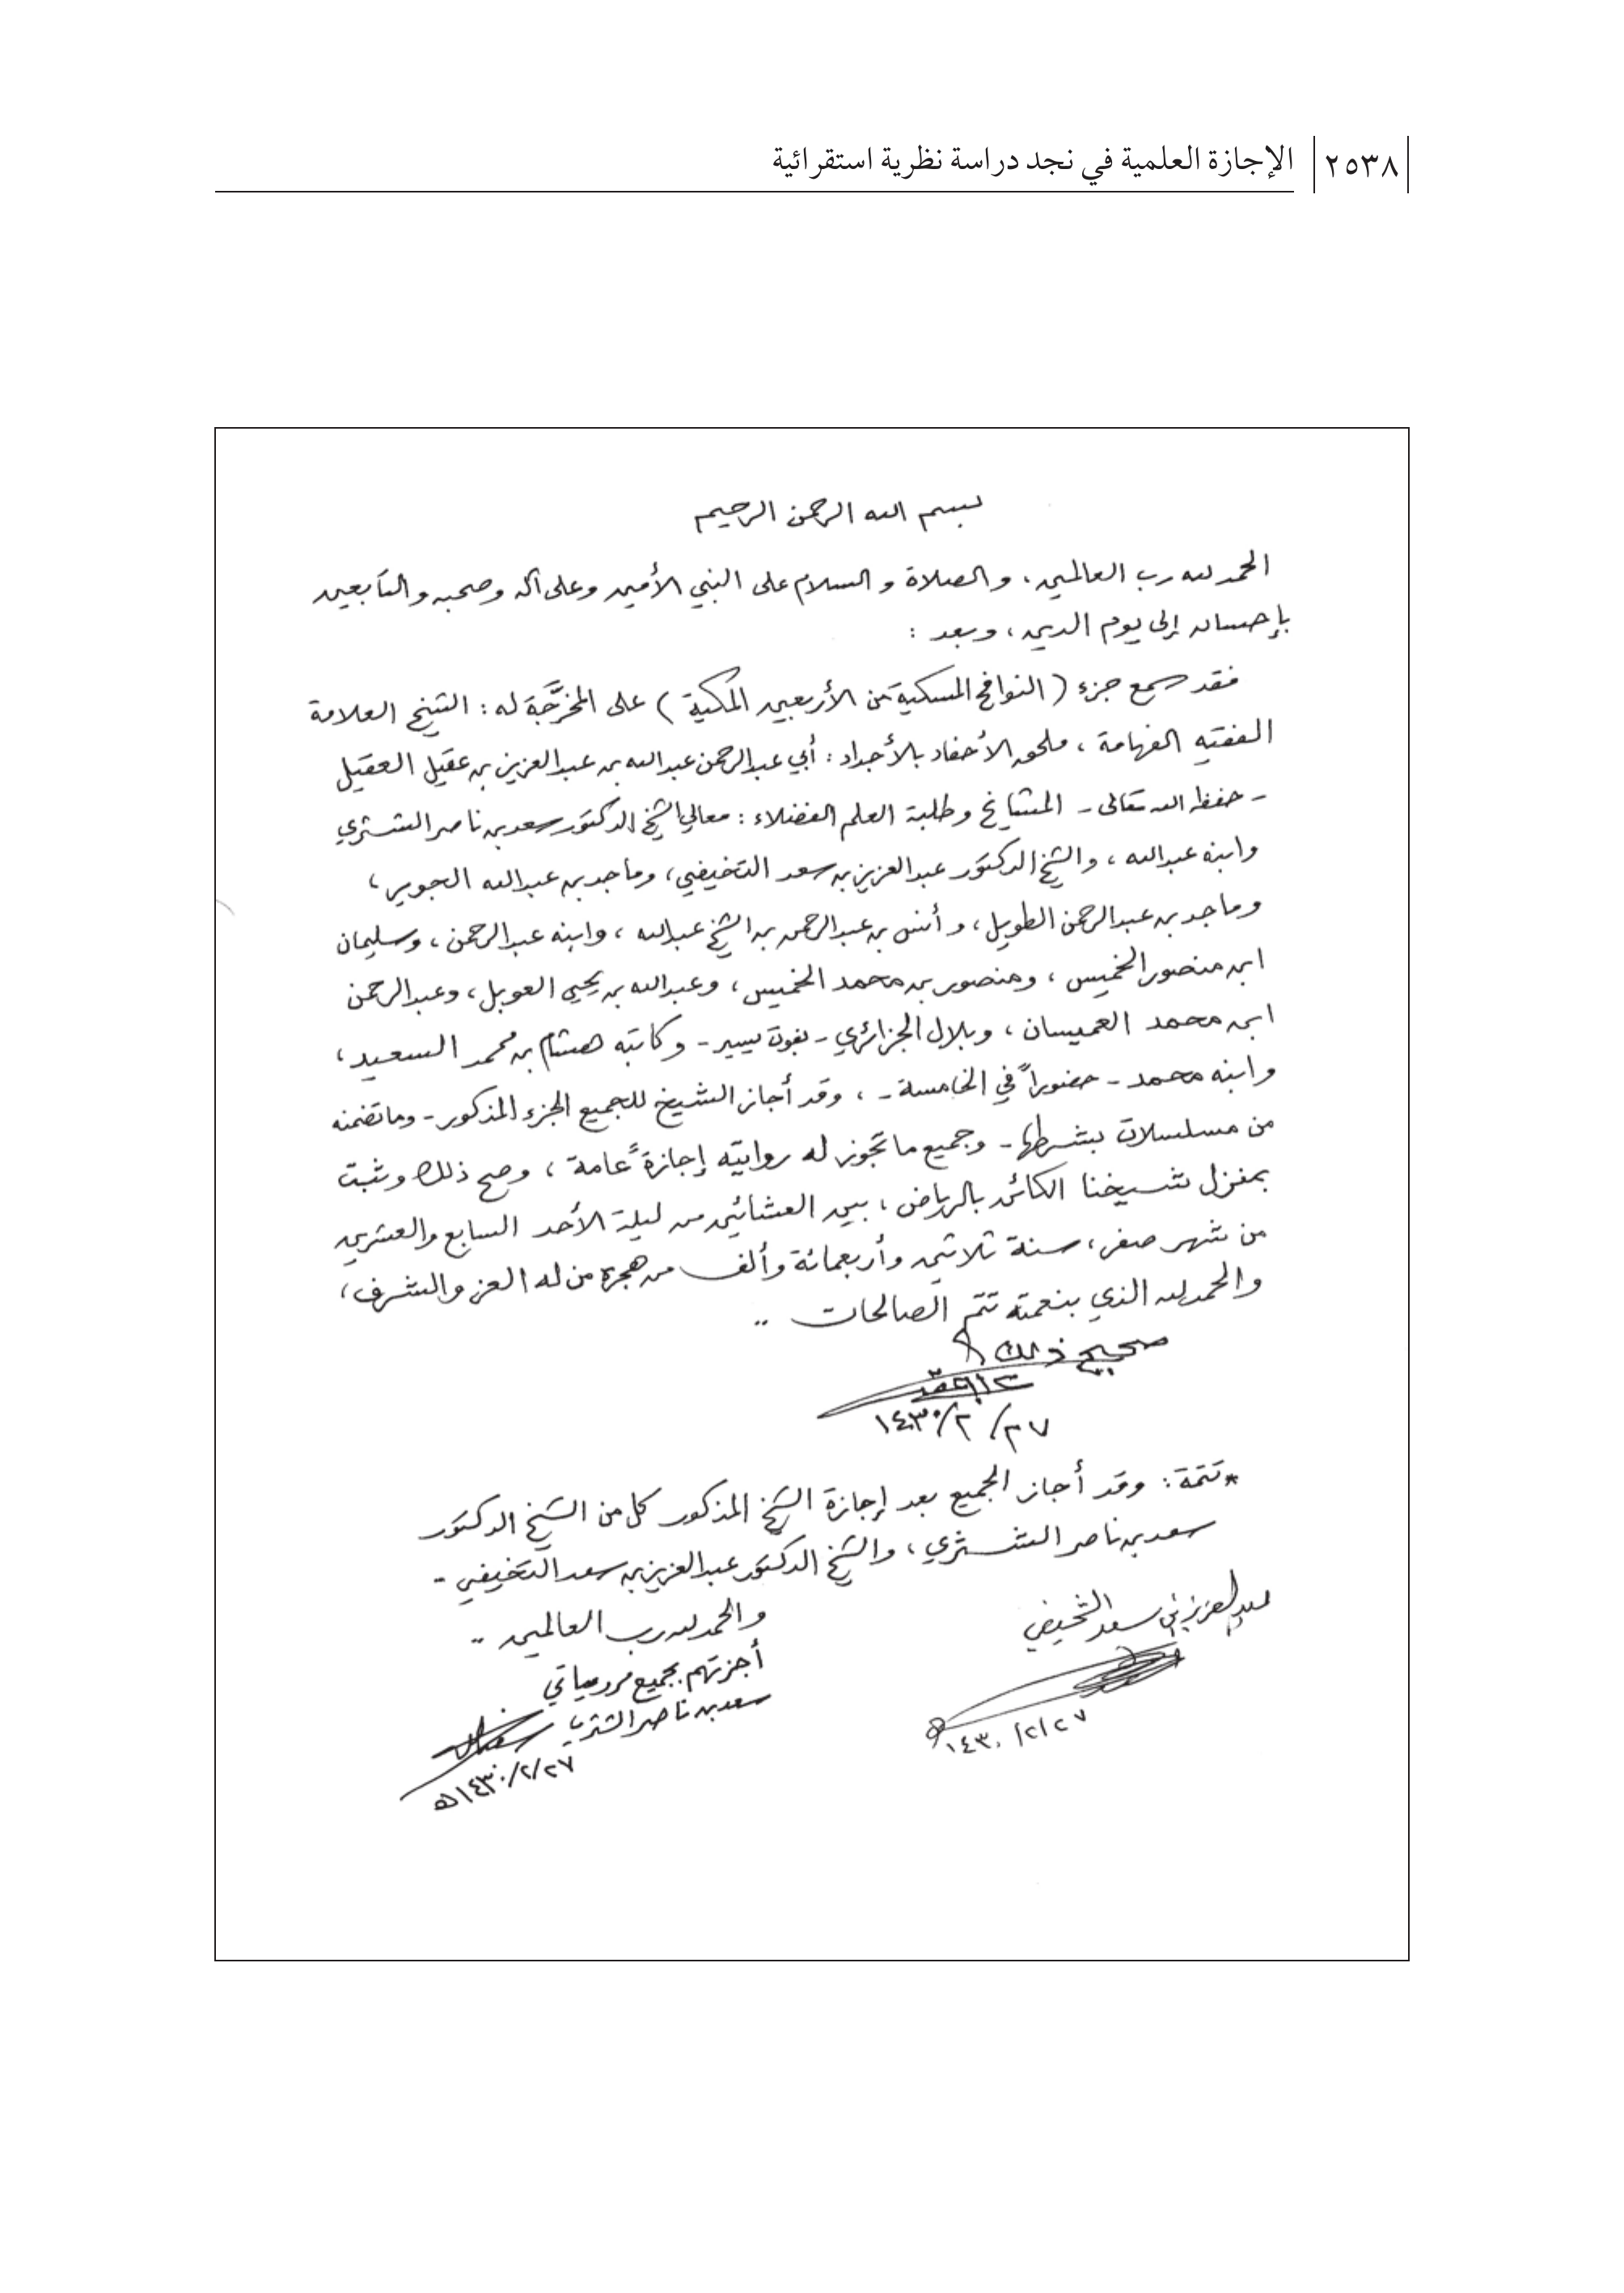 ٢٥٣٨ الإجازة العلمية في نجد دراسة نظرية استقرائية
بسم الله الرحمن الرحيم
الحمد لله رب العالمين، والصلاة والسلام على النبي الأمين وعلى آله وصحبه والتابعين
بإحسان إلى يوم الدين، وبعد :
فقد سمع جزء (النوافح المسكية من الأربعين المكية) على المخرَّجَة له : الشيخ العلامة
الفقيه الفهامة، ملحق الأحفاد بالأجداد : أبي عبدالرحمن عبدالله بن عبدالعزيز بن عقيل العقيل
- حفظه الله تعالى - المشايخ وطلبة العلم الفضلاء : معالي الشيخ الدكتور سعد بن ناصر الشثري
وابنه عبدالله، والشيخ الدكتور عبدالعزيز بن سعد التخيفي، وماجد بن عبدالله الجوير،
وماجد بن عبدالرحمن الطويل، وأنس بن عبدالرحمن بن الشيخ عبدالله، وابنه عبدالرحمن، وسليمان
ابن منصور الخميس، ومنصور بن محمد الخميس، وعبدالله بن يحيى العوبل، وعبدالرحمن
ابن محمد العميسان، وبلال الجزائري - بفوت يسير - وكاتبه هشام بن محمد السعيد،
وابنه محمد - حضوراً في الخامسة - ، وقد أجاز الشيخ للجميع الجزء المذكور - وما تضمنه
من مسلسلات بشرطها - وجميع ما تجوز له روايته إجازةً عامة، وصح ذلك وثبت
بمنزل شيخنا الكائن بالرياض، بين العشائين من ليلة الأحد السابع والعشرين
من شهر صفر، سنة ثلاثين وأربعمائة وألف من هجرة من له العز والشرف،
والحمد لله الذي بنعمته تتم الصالحات ..
صحيح ذلك
٢٧/٢/١٤٣٠
*تتمة : وقد أجاز الجميع بعد إجازة الشيخ المذكور كل من الشيخ الدكتور
سعد بن ناصر الشثري، والشيخ الدكتور عبدالعزيز بن سعد التخيفي ..
والحمد لله رب العالمين ..
عبدالعزيز بن سعد التخيفي
٢٧/٢/١٤٣٠
أجزتهم بجميع مروياتي
سعد بن ناصر الشثري
٢٧/٢/١٤٣٠هـ